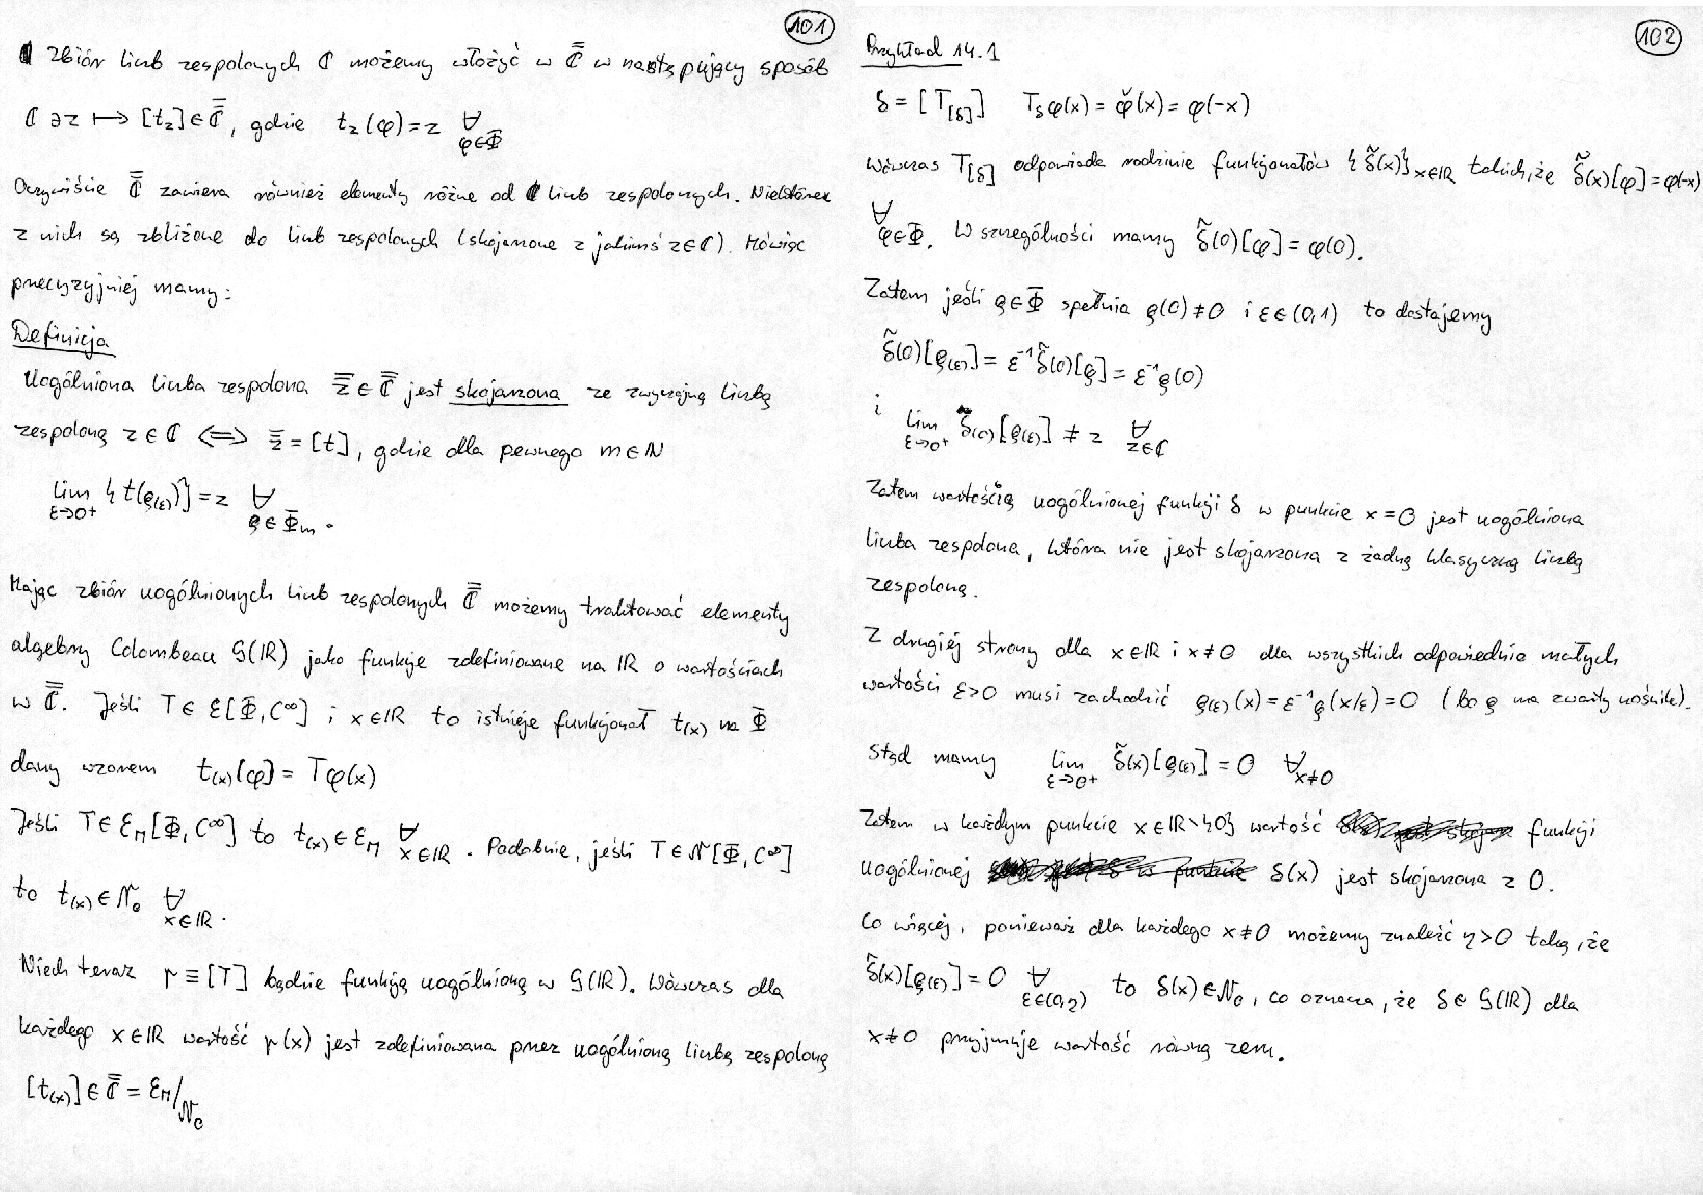 101
zbiór liczb zespolonych ℂ możemy włożyć w ℂ̿ w następujący sposób
ℂ ∋ z ⟼ [t_z] ∈ ℂ̿, gdzie t_z(φ) = z ∀_{φ∈Φ}
Oczywiście ℂ̿ zawiera również elementy różne od liczb zespolonych. Niektóre
z nich są zbliżone do liczb zespolonych (skojarzone z jakimś z∈ℂ). Mówiąc
precyzyjniej mamy:
Definicja
Uogólniona liczba zespolona z̿ ∈ ℂ̿ jest skojarzona ze zwyczajną liczbą
zespoloną z ∈ ℂ ⟺ z̿ = [t], gdzie dla pewnego m ∈ ℕ
lim_{ε→0⁺} {t(ϱ_(ε))} = z ∀_{ϱ∈Φ_m}.
Mając zbiór uogólnionych liczb zespolonych ℂ̿ możemy traktować elementy
algebry Colombeau G(ℝ) jako funkcje zdefiniowane na ℝ o wartościach
w ℂ̿. Jeśli T ∈ ℰ[Φ, C^∞] i x∈ℝ to istnieje funkcjonał t_(x) na Φ
dany wzorem t_(x)[φ] = Tφ(x)
Jeśli T ∈ ℰ_M[Φ, C^∞] to t_(x) ∈ ℰ_M ∀_{x∈ℝ}. Podobnie, jeśli T ∈ 𝒩[Φ, C^∞]
to t_(x) ∈ 𝒩_0 ∀_{x∈ℝ}.
Niech teraz r ≡ [T] będzie funkcją uogólnioną w G(ℝ). Wówczas dla
każdego x∈ℝ wartość r(x) jest zdefiniowana przez uogólnioną liczbę zespoloną
[t_(x)] ∈ ℂ̿ = ℰ_M/𝒩_0
102
Przykład 14.1
δ = [T_[δ]] T_δφ(x) = φ̌(x) = φ(-x)
Wówczas T_[δ] odpowiada rodzinie funkcjonałów {δ̃(x)}_{x∈ℝ} takich, że δ̃(x)[φ] = φ(-x)
∀_{φ∈Φ}. W szczególności mamy δ̃(0)[φ] = φ(0).
Zatem jeśli ϱ∈Φ spełnia ϱ(0) ≠ 0 i ε∈(0,1) to dostajemy
δ̃(0)[ϱ_(ε)] = ε⁻¹δ̃(0)[ϱ] = ε⁻¹ϱ(0)
i lim_{ε→0⁺} δ̃(0)[ϱ_(ε)] ≠ z ∀_{z∈ℂ}
Zatem wartością uogólnionej funkcji δ w punkcie x = 0 jest uogólniona
liczba zespolona, która nie jest skojarzona z żadną klasyczną liczbą
zespoloną.
Z drugiej strony dla x∈ℝ i x≠0 dla wszystkich odpowiednio małych
wartości ε>0 musi zachodzić ϱ_(ε)(x) = ε⁻¹ϱ(x/ε) = 0 (bo ϱ ma zwarty nośnik).
Stąd mamy lim_{ε→0⁺} δ̃(x)[ϱ_(ε)] = 0 ∀_{x≠0}
Zatem w każdym punkcie x∈ℝ\{0} wartość funkcji
uogólnionej δ(x) jest skojarzona z 0.
Co więcej, ponieważ dla każdego x≠0 możemy znaleźć η>0 taką, że
δ̃(x)[ϱ_(ε)] = 0 ∀_{ε∈(0,η)} to δ(x)∈𝒩_0, co oznacza, że δ∈G(ℝ) dla
x≠0 przyjmuje wartość równą zeru.